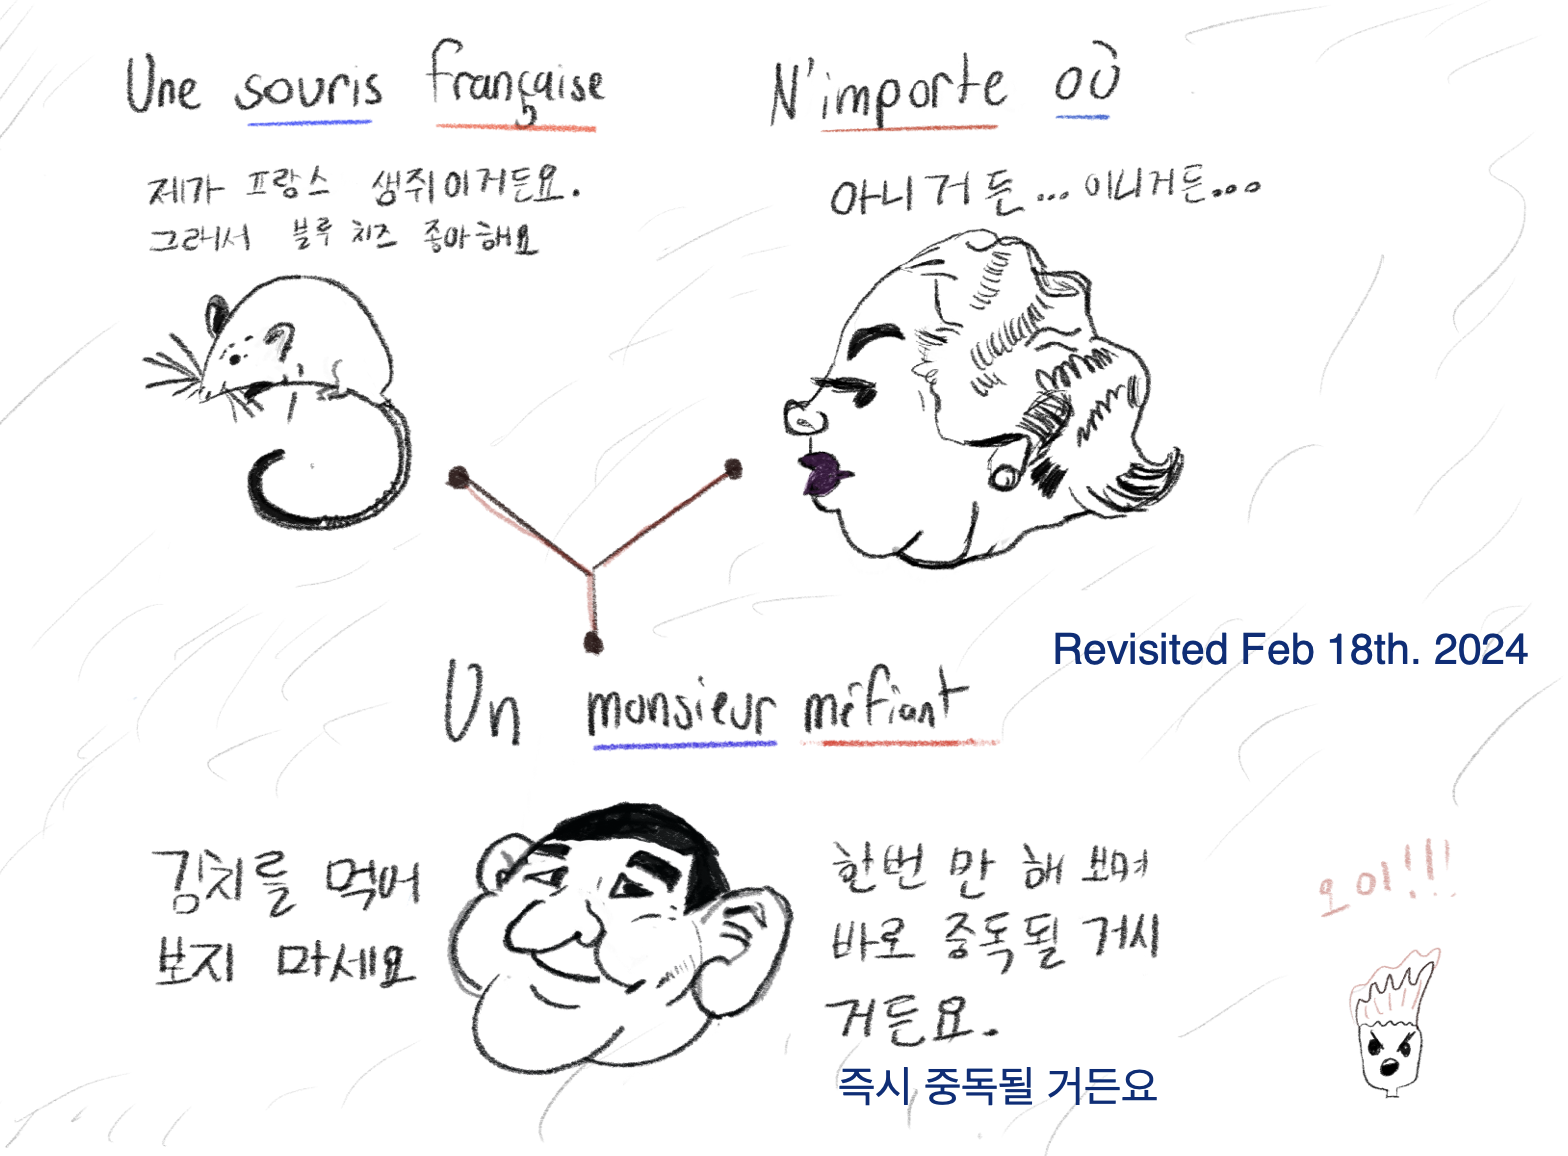 Une souris française
제가 프랑스 생쥐이거든요.
그래서 블루 치즈 좋아해요
N'importe où
아니거든... 이니거든...
Revisited Feb 18th. 2024
Un monsieur méfiant
김치를 먹어
보지 마세요
한번 만 해 보며
바로 중독될 거시
거든요.
즉시 중독될 거든요
오이!!!